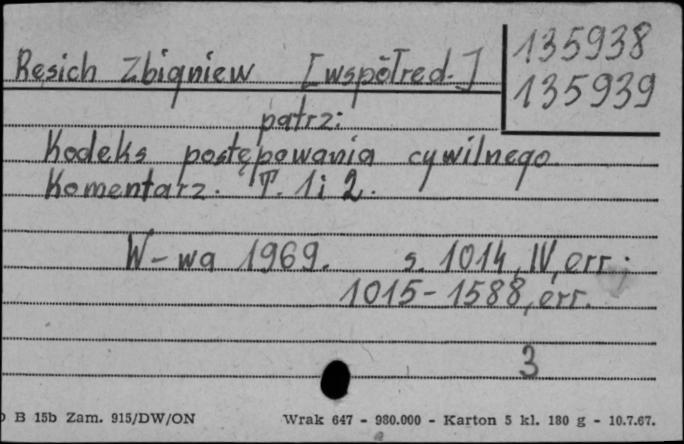 Resich Zbigniew [współred.] 135938
135939
patrz:
Kodeks postępowania cywilnego
Komentarz. T. 1 i 2.
W-wa 1969. s. 1014, IV, err.
1015-1588, err.
3
B 15b Zam. 915/DW/ON Wrak 647 - 980.000 - Karton 5 kl. 180 g - 10.7.67.